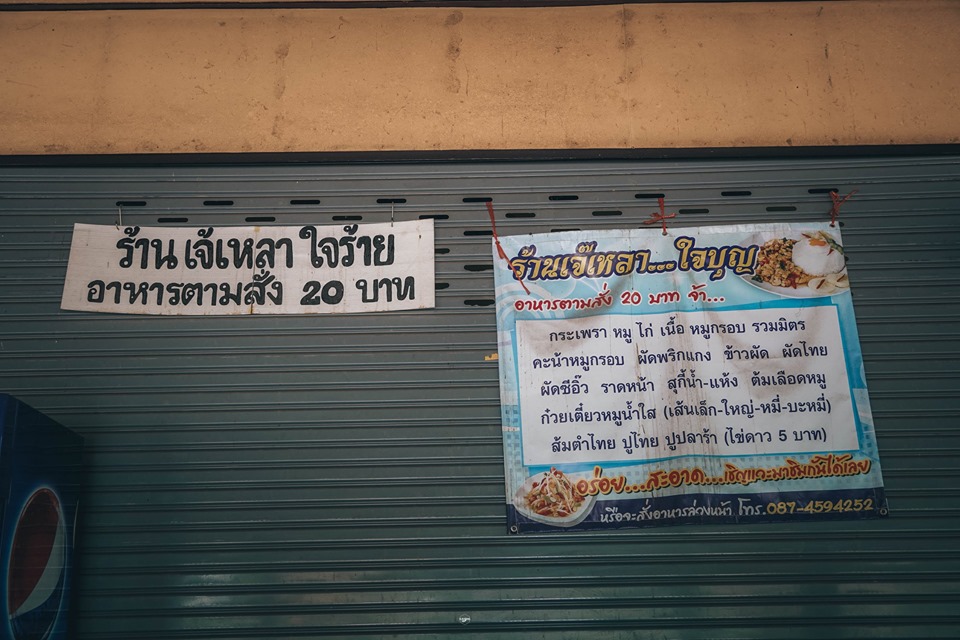 ร้าน เจ้เหลา ใจร้าย
อาหารตามสั่ง 20 บาท
ร้านเจ๊เหลา...ใจบุญ
อาหารตามสั่ง 20 บาท จ้า...
กระเพรา หมู ไก่ เนื้อ หมูกรอบ รวมมิตร
คะน้าหมูกรอบ ผัดพริกแกง ข้าวผัด ผัดไทย
ผัดซีอิ๊ว ราดหน้า สุกี้น้ำ-แห้ง ต้มเลือดหมู
ก๋วยเตี๋ยวหมูน้ำใส (เส้นเล็ก-ใหญ่-หมี่-บะหมี่)
ส้มตำไทย ปูไทย ปูปลาร้า (ไข่ดาว 5 บาท)
อร่อย....สะอาด...เชิญแวะมาชิมกันได้เลย
หรือจะสั่งอาหารล่วงหน้า โทร.087-4594252